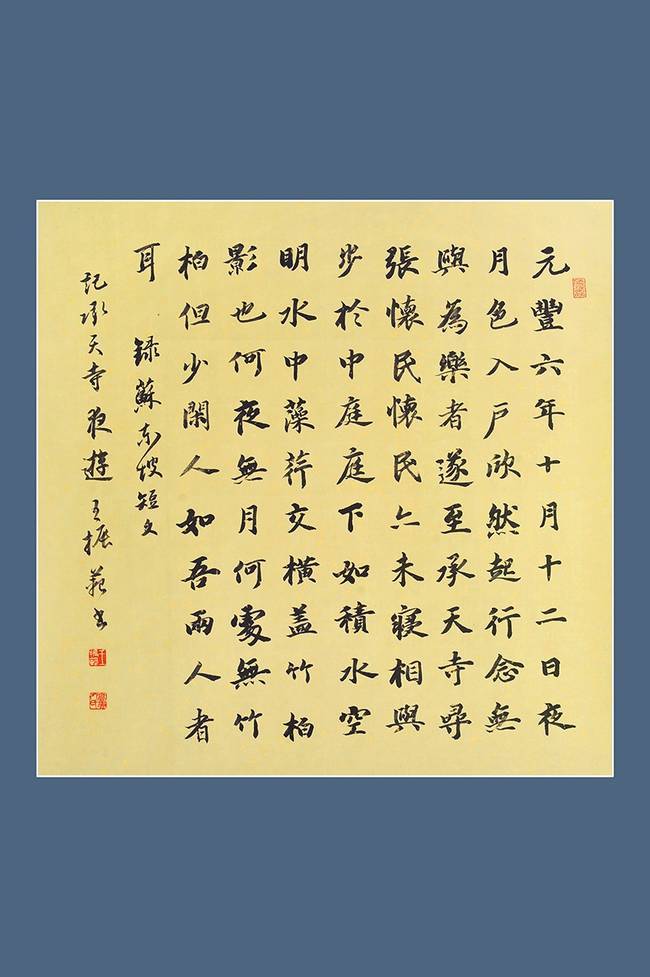 元豐六年十月十二日夜
月色入戶欣然起行念無
與為樂者遂至承天寺尋
張懷民懷民亦未寢相與
步於中庭庭下如積水空
明水中藻荇交橫蓋竹柏
影也何夜無月何處無竹
柏但少閑人如吾兩人者
耳 錄蘇東坡短文
記承天寺夜遊 王振書